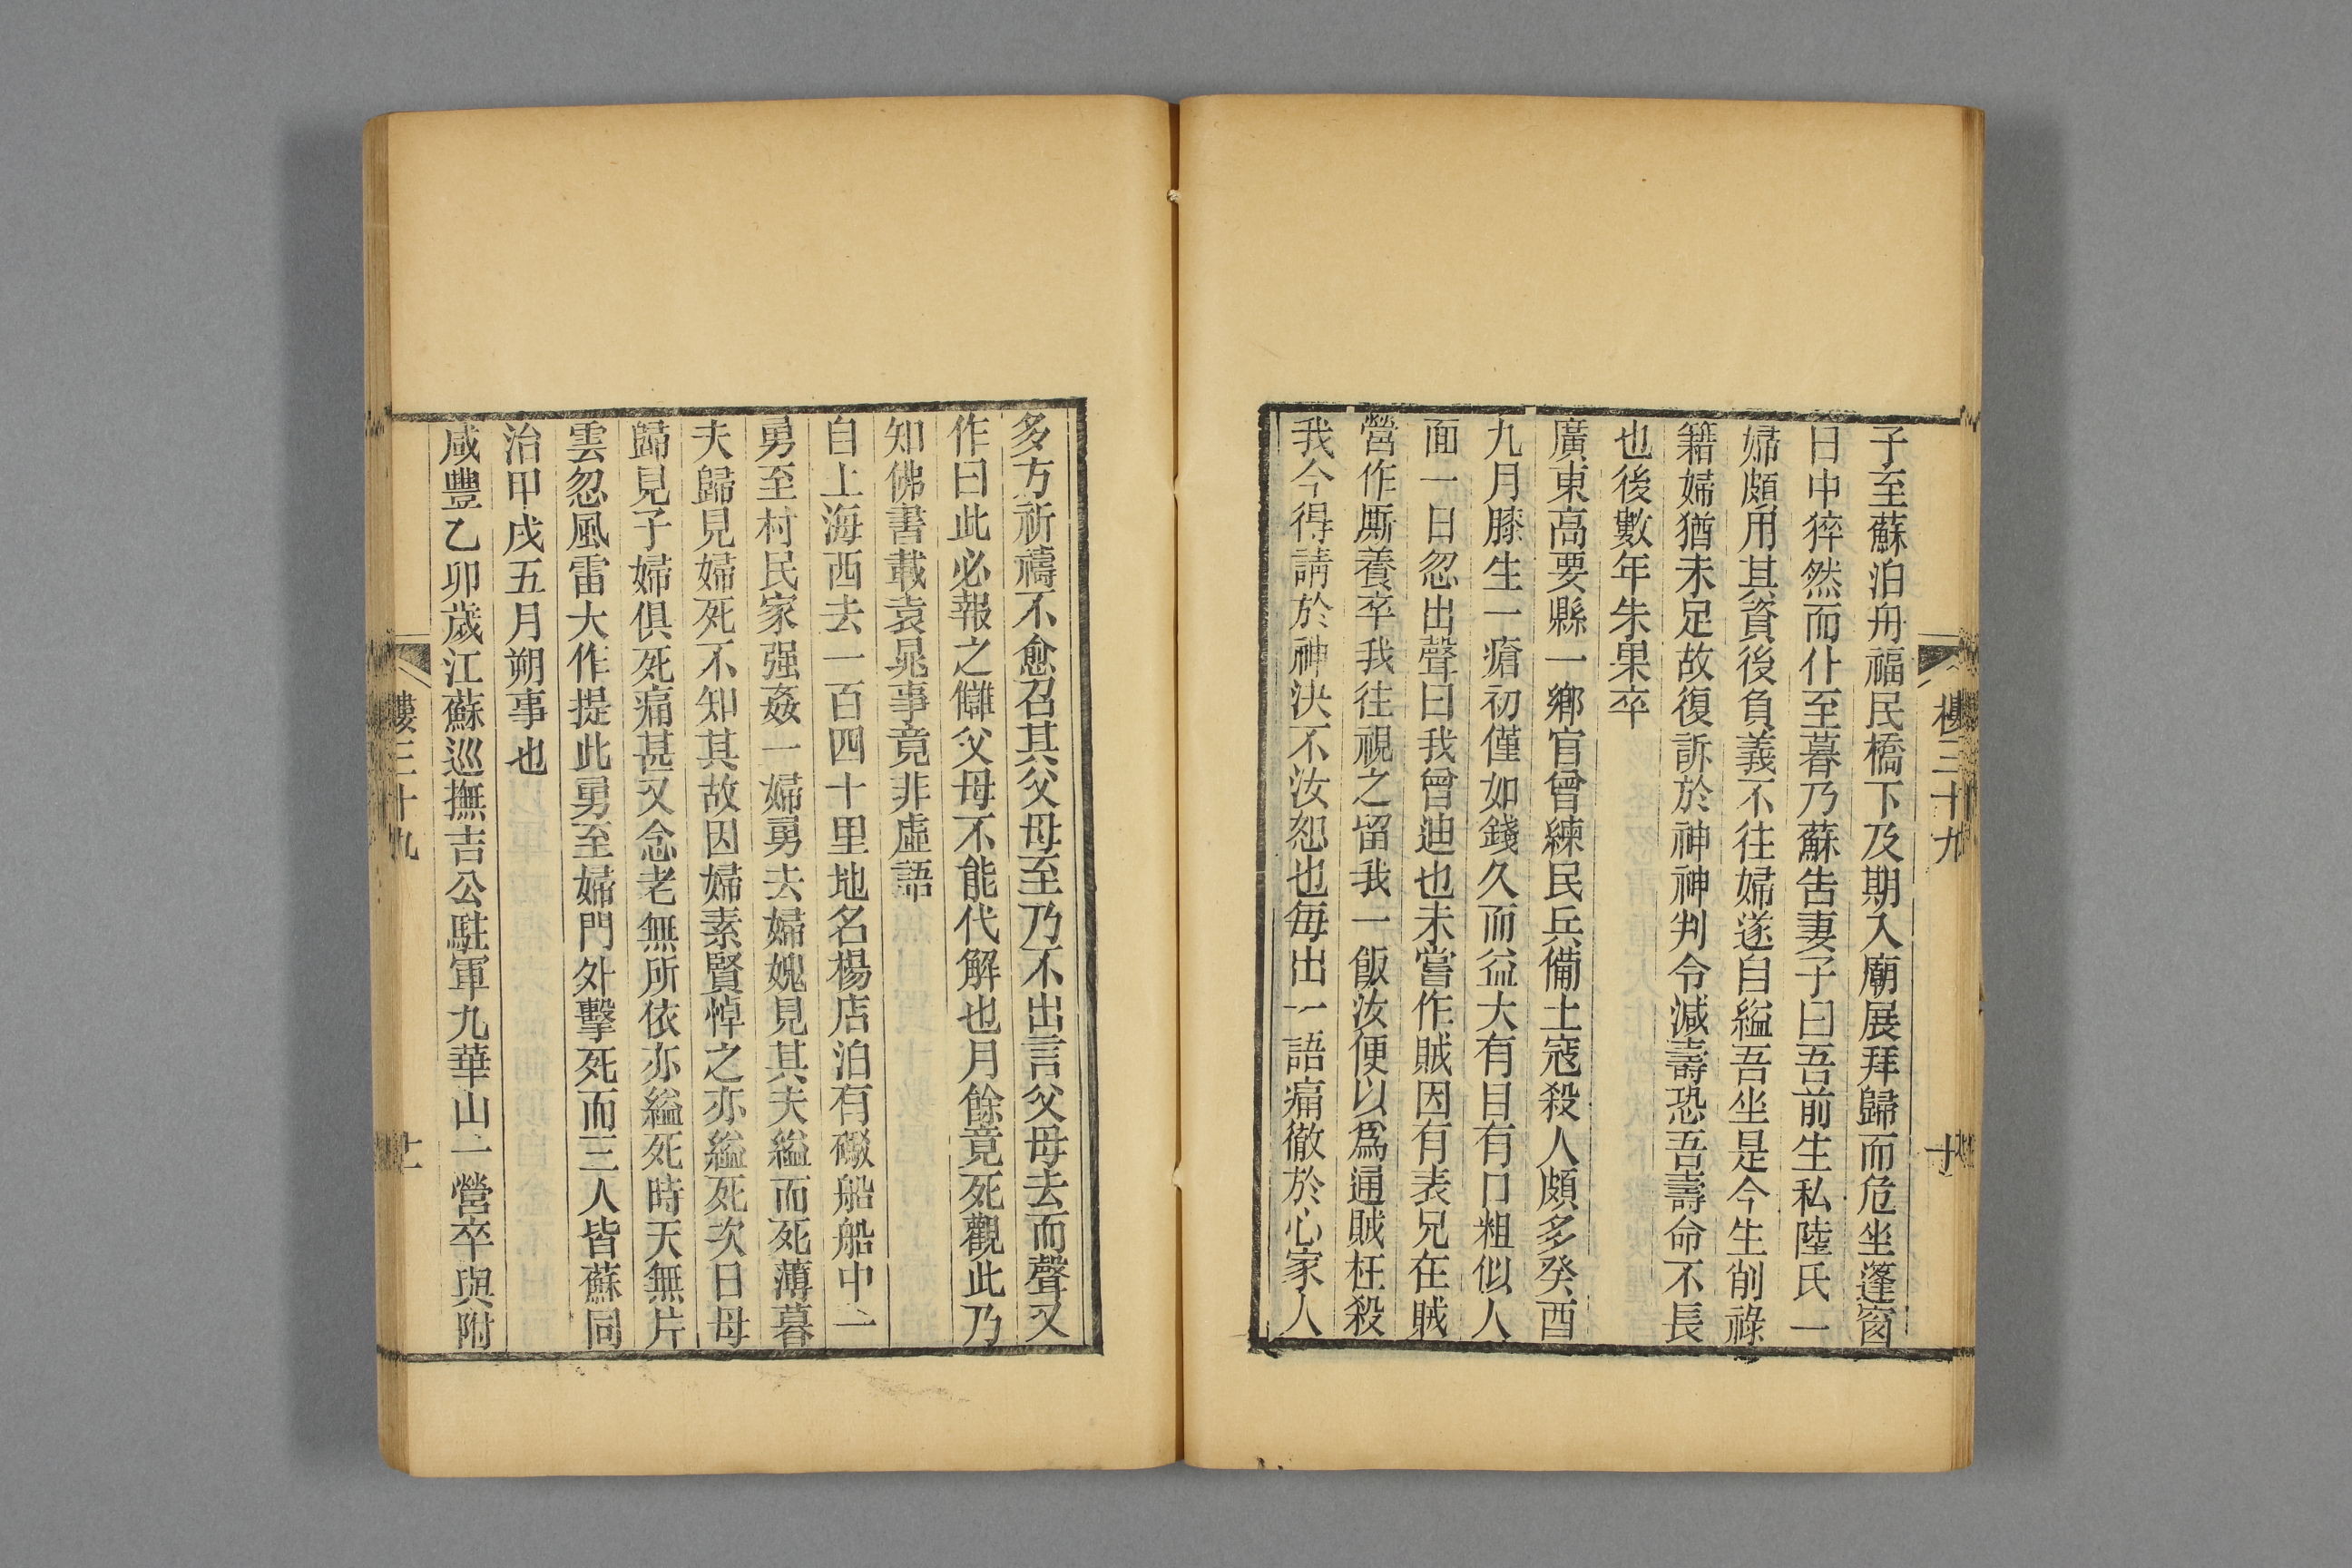 樓三十九
十
子至蘇泊舟福民橋下及期入廟展拜歸而危坐蓬窗
日中猝然而仆至暮乃蘇告妻子曰吾前生私陸氏一
婦頗用其資後負義不往婦遂自縊吾坐是今生削祿
籍婦猶未足故復訴於神神判令減壽恐吾壽命不長
也後數年朱果卒
廣東高要縣一鄉官曾練民兵備土寇殺人頗多癸酉
九月膝生一瘡初僅如錢久而益大有目有口粗似人
面一日忽出聲曰我曾迪也未嘗作賊因有表兄在賊
營作厮養卒我往視之留我一飯汝便以為通賊枉殺
我今得請於神決不汝恕也每出一語痛徹於心家人
多方祈禱不愈召其父母至乃不出言父母去而聲又
作曰此必報之讎父母不能代解也月餘竟死觀此乃
知佛書載袁晁事竟非虛語
自上海西去一百四十里地名楊店泊有礟船船中一
勇至村民家强姦一婦勇去婦媿見其夫縊而死薄暮
夫歸見婦死不知其故因婦素賢悼之亦縊死次日母
歸見子婦俱死痛甚又念老無所依亦縊死時天無片
雲忽風雷大作提此勇至婦門外擊死而三人皆蘇同
治甲戌五月朔事也
咸豐乙卯歲江蘇巡撫吉公駐軍九華山一營卒與附
樓三十九
十一